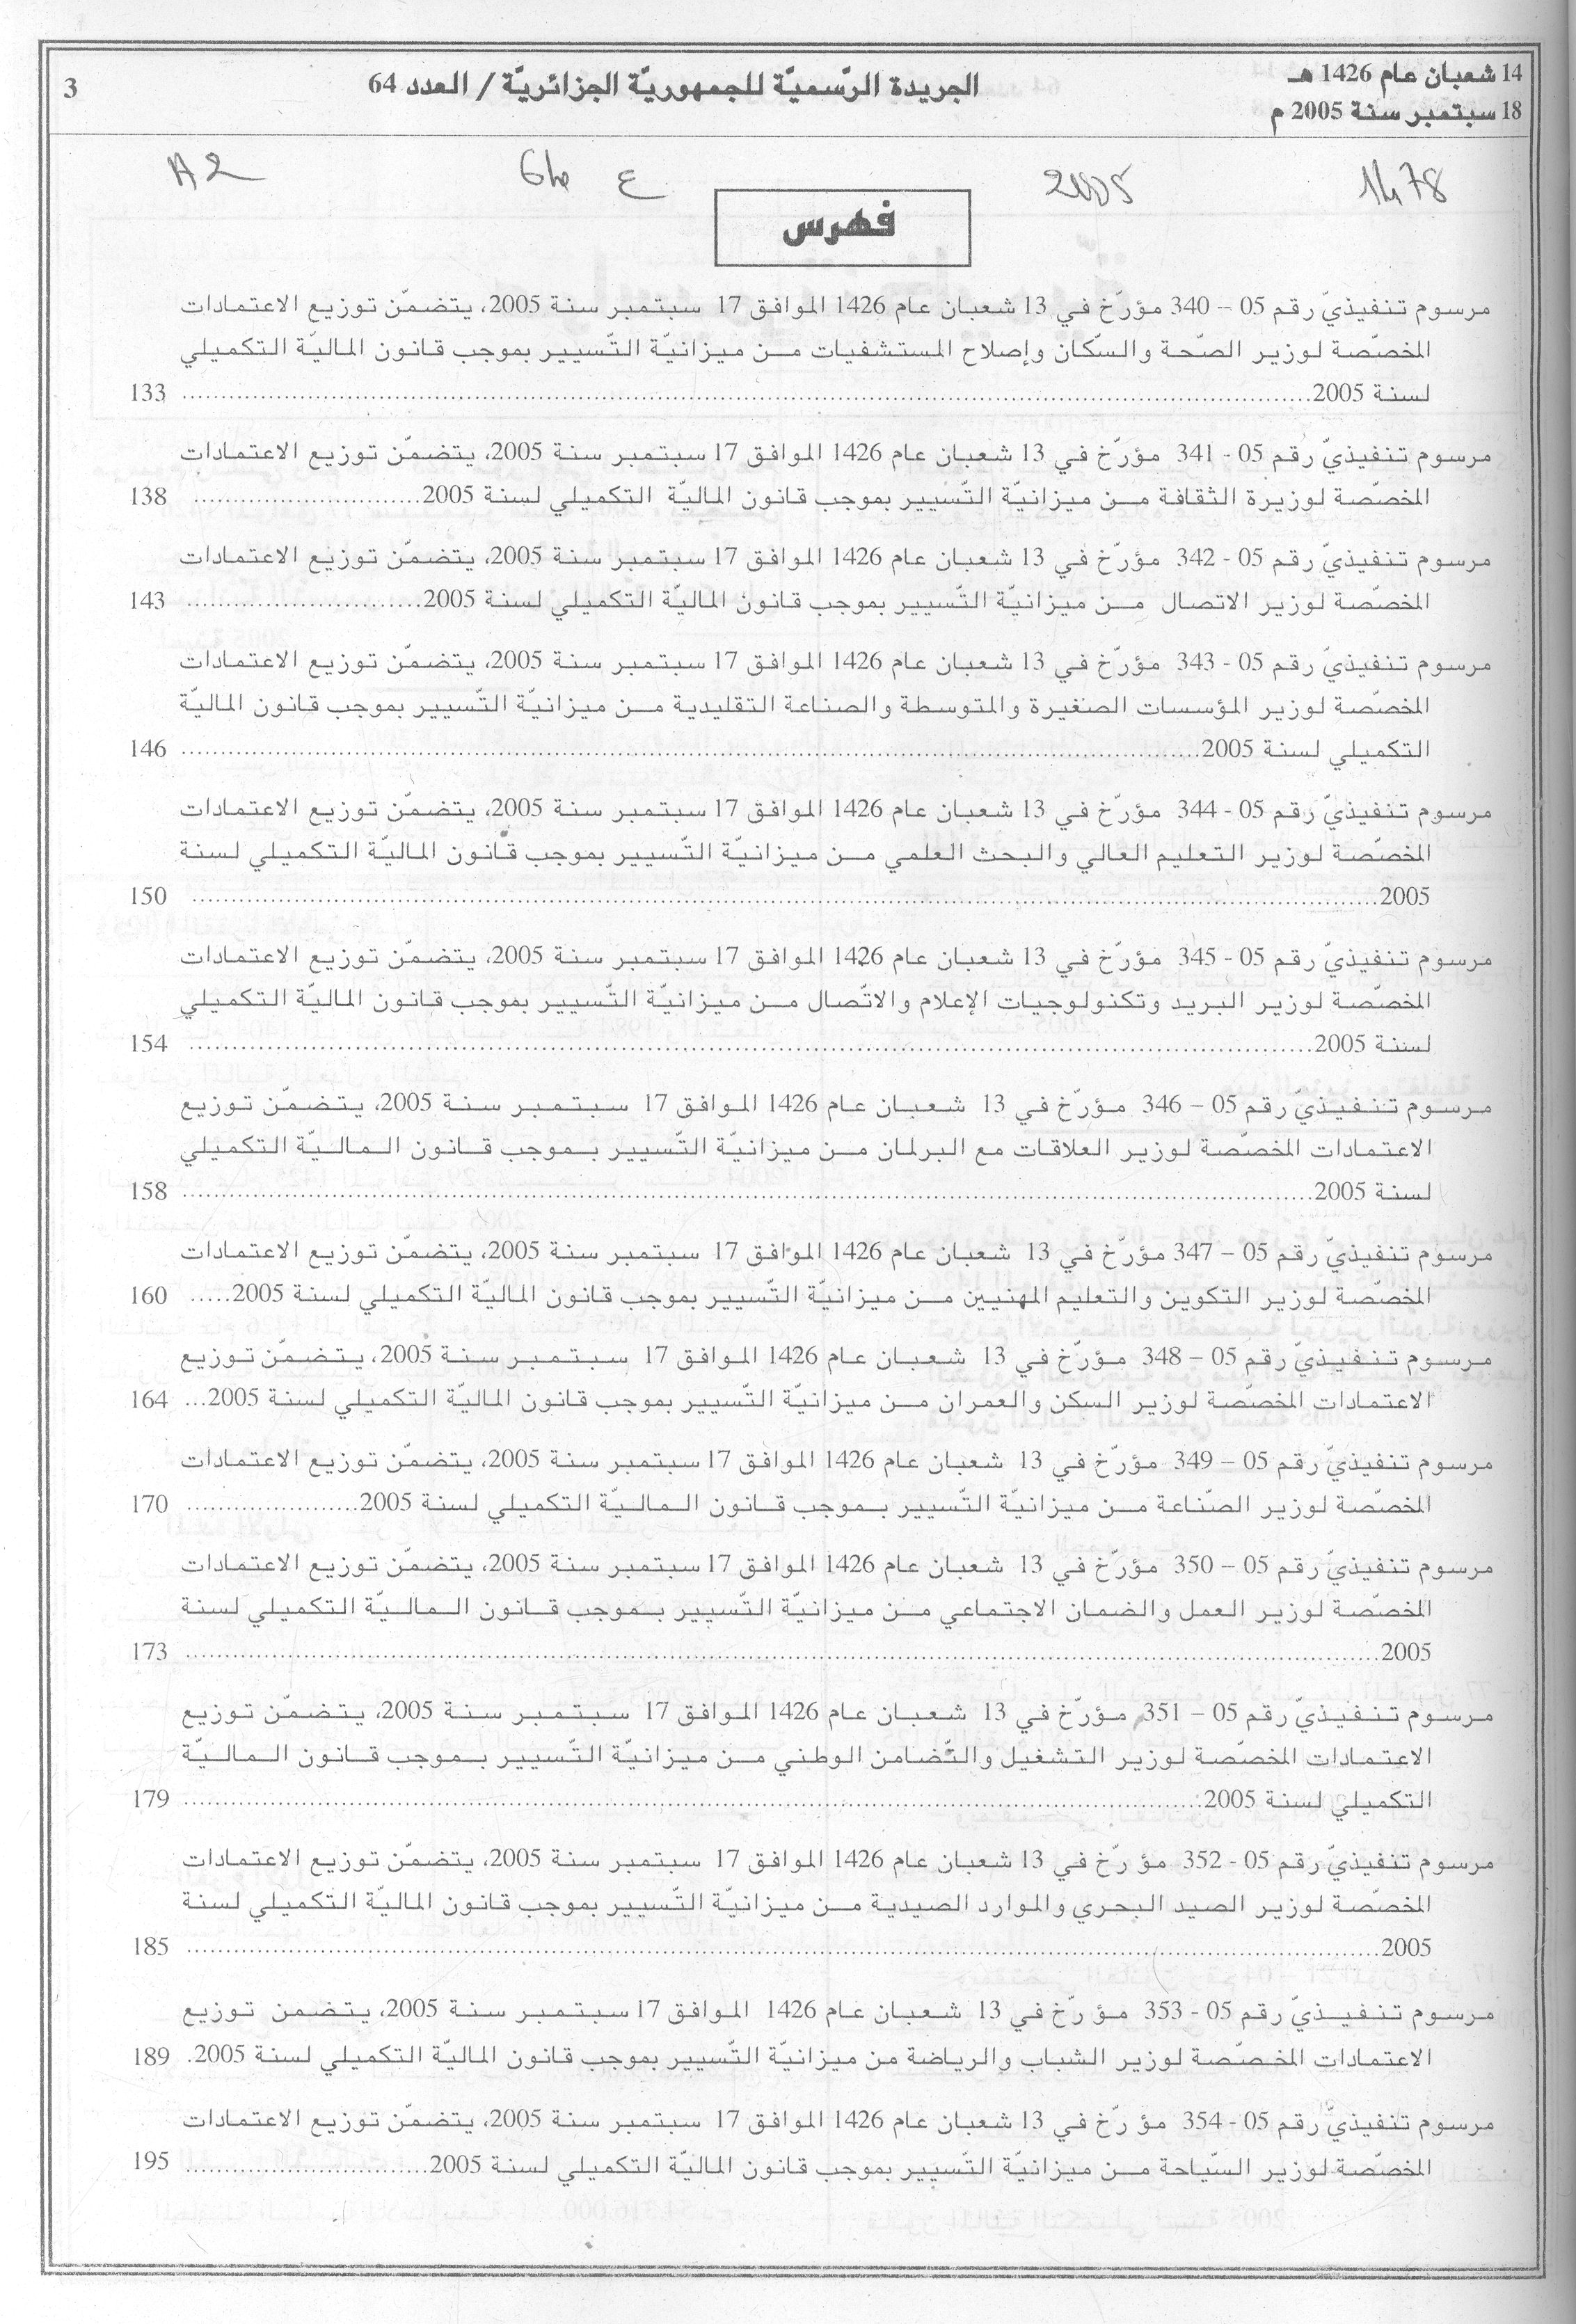 14 شعبان عام 1426 هـ
18 سبتمبر سنة 2005 م
الجريدة الرّسميّة للجمهوريّة الجزائريّة / العدد 64
3
1478
2005
ع 64
A2
فهرس
مرسوم تنفيذيّ رقم 05 – 340 مؤرّخ في 13 شعبان عام 1426 الموافق 17 سبتمبر سنة 2005، يتضمّن توزيع الاعتمادات
المخصّصة لوزير الصّحة والسّكان وإصلاح المستشفيات مـن ميزانيّة التّسيير بموجب قانون الماليّة التكميلي
لسنة 2005........................................ 133
مرسوم تنفيذيّ رقم 05 - 341 مؤرّخ في 13 شعبان عام 1426 الموافق 17 سبتمبر سنة 2005، يتضمّن توزيع الاعتمادات
المخصّصة لوزيرة الثقافة مـن ميزانيّة التّسيير بموجب قانون الماليّة التكميلي لسنة 2005............................ 138
مرسوم تنفيذيّ رقم 05 - 342 مؤرّخ في 13 شعبان عام 1426 الموافق 17 سبتمبر سنة 2005، يتضمّن توزيع الاعتمادات
المخصّصة لوزير الاتصال مـن ميزانيّة التّسيير بموجب قانون الماليّة التكميلي لسنة 2005............................ 143
مرسوم تنفيذيّ رقم 05 - 343 مؤرّخ في 13 شعبان عام 1426 الموافق 17 سبتمبر سنة 2005، يتضمّن توزيع الاعتمادات
المخصّصة لوزير المؤسسات الصغيرة والمتوسطة والصناعة التقليدية مـن ميزانيّة التّسيير بموجب قانون الماليّة
التكميلي لسنة 2005........................................ 146
مرسوم تنفيذيّ رقم 05 - 344 مؤرّخ في 13 شعبان عام 1426 الموافق 17 سبتمبر سنة 2005، يتضمّن توزيع الاعتمادات
المخصّصة لوزير التعليم العالي والبحث العلمي مـن ميزانيّة التّسيير بموجب قانون الماليّة التكميلي لسنة
2005........................................ 150
مرسوم تنفيذيّ رقم 05 - 345 مؤرّخ في 13 شعبان عام 1426 الموافق 17 سبتمبر سنة 2005، يتضمّن توزيع الاعتمادات
المخصّصة لوزير البريد وتكنولوجيات الإعلام والاتّصال مـن ميزانيّة التّسيير بموجب قانون الماليّة التكميلي
لسنة 2005........................................ 154
مرسوم تنفيذيّ رقم 05 – 346 مؤرّخ في 13 شعبان عام 1426 الموافق 17 سبتمبر سنة 2005، يتضمّن توزيع
الاعتمادات المخصّصة لوزير العلاقات مع البرلمان مـن ميزانيّة التّسيير بـموجب قـانون الـماليّة التكميلي
لسنة 2005........................................ 158
مرسوم تنفيذيّ رقم 05 – 347 مؤرّخ في 13 شعبان عام 1426 الموافق 17 سبتمبر سنة 2005، يتضمّن توزيع الاعتمادات
المخصّصة لوزير التكوين والتعليم المهنيين مـن ميزانيّة التّسيير بموجب قانون الماليّة التكميلي لسنة 2005..... 160
مرسوم تنفيذيّ رقم 05 – 348 مؤرّخ في 13 شعبان عام 1426 الموافق 17 سبتمبر سنة 2005، يتضمّن توزيع
الاعتمادات المخصّصة لوزير السكن والعمران مـن ميزانيّة التّسيير بموجب قانون الماليّة التكميلي لسنة 2005... 164
مرسوم تنفيذيّ رقم 05 – 349 مؤرّخ في 13 شعبان عام 1426 الموافق 17 سبتمبر سنة 2005، يتضمّن توزيع الاعتمادات
المخصّصة لوزير الصّناعة مـن ميزانيّة التّسيير بـموجب قـانون الـماليّة التكميلي لسنة 2005..................... 170
مرسوم تنفيذيّ رقم 05 – 350 مؤرّخ في 13 شعبان عام 1426 الموافق 17 سبتمبر سنة 2005، يتضمّن توزيع الاعتمادات
المخصّصة لوزير العمل والضمان الاجتماعي مـن ميزانيّة التّسيير بـموجب قـانون الـماليّة التكميلي لسنة
2005........................................ 173
مرسوم تنفيذيّ رقم 05 – 351 مؤرّخ في 13 شعبان عام 1426 الموافق 17 سبتمبر سنة 2005، يتضمّن توزيع
الاعتمادات المخصّصة لوزير التشغيل والتّضامن الوطني مـن ميزانيّة التّسيير بـموجب قـانون الـماليّة
التكميلي لسنة 2005........................................ 179
مرسوم تنفيذيّ رقم 05 - 352 مؤرّخ في 13 شعبان عام 1426 الموافق 17 سبتمبر سنة 2005، يتضمّن توزيع الاعتمادات
المخصّصة لوزير الصيد البحري والموارد الصيدية مـن ميزانيّة التّسيير بموجب قانون الماليّة التكميلي لسنة
2005........................................ 185
مرسوم تنفيذيّ رقم 05 - 353 مؤرّخ في 13 شعبان عام 1426 الموافق 17 سبتمبر سنة 2005، يتضمن توزيع
الاعتمادات المخصّصة لوزير الشباب والرياضة من ميزانيّة التّسيير بموجب قانون الماليّة التكميلي لسنة 2005. 189
مرسوم تنفيذيّ رقم 05 - 354 مؤرّخ في 13 شعبان عام 1426 الموافق 17 سبتمبر سنة 2005، يتضمّن توزيع الاعتمادات
المخصّصة لوزير السّياحة مـن ميزانيّة التّسيير بموجب قانون الماليّة التكميلي لسنة 2005............................ 195